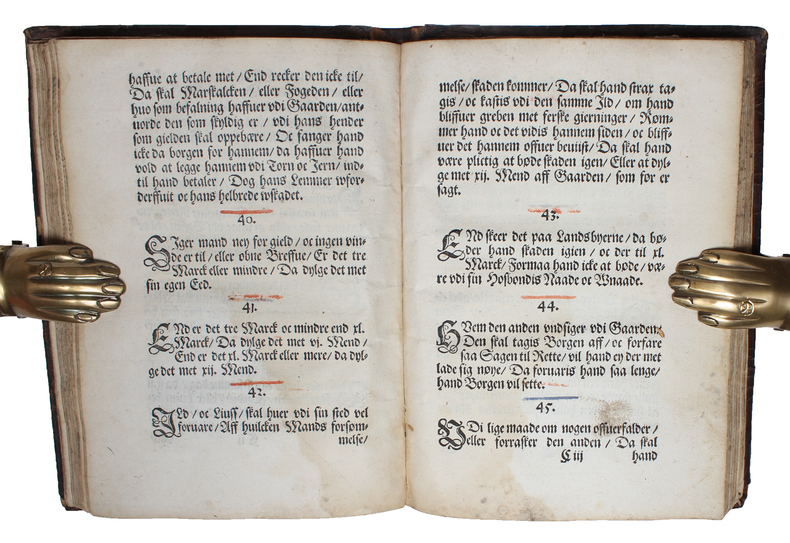 haffue at betale met / End recker den icke til /
Da skal Marskalcken / eller Fogeden / eller
huo som befalning haffuer vdi Gaarden / ant-
uorde den som skyldig er / vdi hans hender
som gielden skal oppebære / Oc fanger hand
icke da borgen for hannem / da haffuer hand
vold at legge hannem vdi Torn oc Jern / ind-
til hand betaler / Dog hans Lemmer wfor-
derffuit oc hans helbrede wskadet.
40.
SIger mand ney for gield / oc ingen vin-
de er til / eller obne Breffue / Er det tre
Marck eller mindre / Da dylge det met
sin egen Eed.
41.
ENd er det tre Marck oc mindre end xl.
Marck / Da dylge det met vj. Mend /
End er det xl. Marck eller mere / da dyl-
ge det met xij. Mend.
42.
ILd / oc Liuss / skal huer vdi sin sted vel
foruare / Aff huilcken Mands forsøm-
melse /
melse / skaden kommer / Da skal hand strax ta-
gis / oc kastis vdi den samme Ild / om hand
bliffuer greben met ferske gierninger / Røm-
mer hand oc det vidis hannem siden / oc bliff-
uer det hannem offuer beuijst / Da skal hand
være plictig at bøde skaden igen / Eller at dyl-
ge met xij. Mend aff Gaarden / som før er
sagt.
43.
ENd skeer det paa Landsbyerne / da bø-
der hand skaden igien / oc der til xl.
Marck / Formaa hand icke at bøde / væ-
re vdi sin Hosbondis Naade oc Wnaade.
44.
HVem den anden vndsiger vdi Gaarden /
Den skal tagis Borgen aff / oc forfare
saa Sagen til Rette / vil hand ey der met
lade sig nøye / Da foruaris hand saa lenge /
hand Borgen vil sette.
45.
VDi lige maade om nogen offuerfalder /
eller forrasker den anden / Da skal
C iij
hand